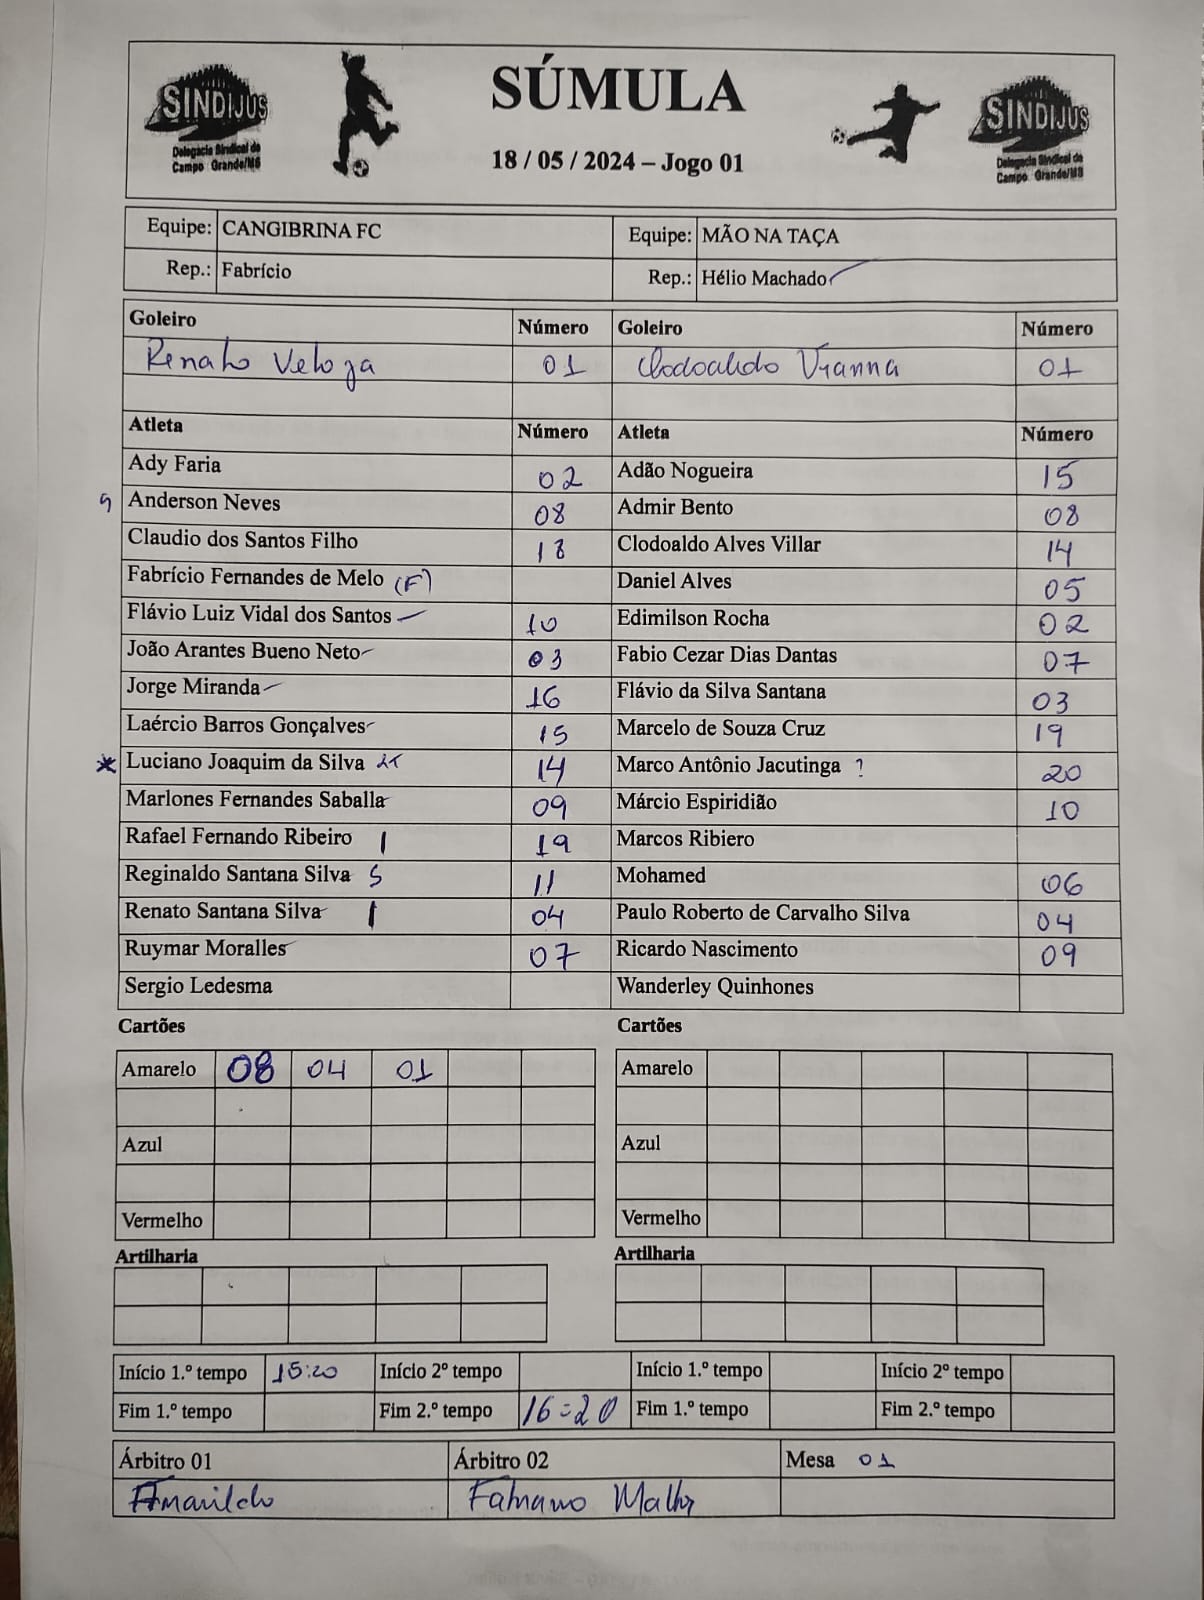 SINDIJUS
Delegacia Sindical de
Campo Grande/MS
SÚMULA
18 / 05 / 2024 – Jogo 01
SINDIJUS
Delegacia Sindical de
Campo Grande/MS
Equipe: CANGIBRINA FC Equipe: MÃO NA TAÇA
Rep.: Fabrício Rep.: Hélio Machado
Goleiro Número Goleiro Número
Renato Veloza 01 Clodoaldo Vianna 01
Atleta Número Atleta Número
Ady Faria 02 Adão Nogueira 15
Anderson Neves 08 Admir Bento 08
Claudio dos Santos Filho 18 Clodoaldo Alves Villar 14
Fabrício Fernandes de Melo (F) Daniel Alves 05
Flávio Luiz Vidal dos Santos 10 Edimilson Rocha 02
João Arantes Bueno Neto 03 Fabio Cezar Dias Dantas 07
Jorge Miranda 16 Flávio da Silva Santana 03
Laércio Barros Gonçalves 15 Marcelo de Souza Cruz 19
* Luciano Joaquim da Silva 14 Marco Antônio Jacutinga ? 20
Marlones Fernandes Saballa 09 Márcio Espiridião 10
Rafael Fernando Ribeiro 19 Marcos Ribiero
Reginaldo Santana Silva S 11 Mohamed 06
Renato Santana Silva 04 Paulo Roberto de Carvalho Silva 04
Ruymar Moralles 07 Ricardo Nascimento 09
Sergio Ledesma Wanderley Quinhones
Cartões Cartões
Amarelo 08 04 01 Amarelo
Azul Azul
Vermelho Vermelho
Artilharia Artilharia
Início 1.º tempo 15:20 Início 2º tempo Início 1.º tempo Início 2º tempo
Fim 1.º tempo Fim 2.º tempo 16=20 Fim 1.º tempo Fim 2.º tempo
Árbitro 01 Árbitro 02 Mesa 01
Amarildo Fabiano